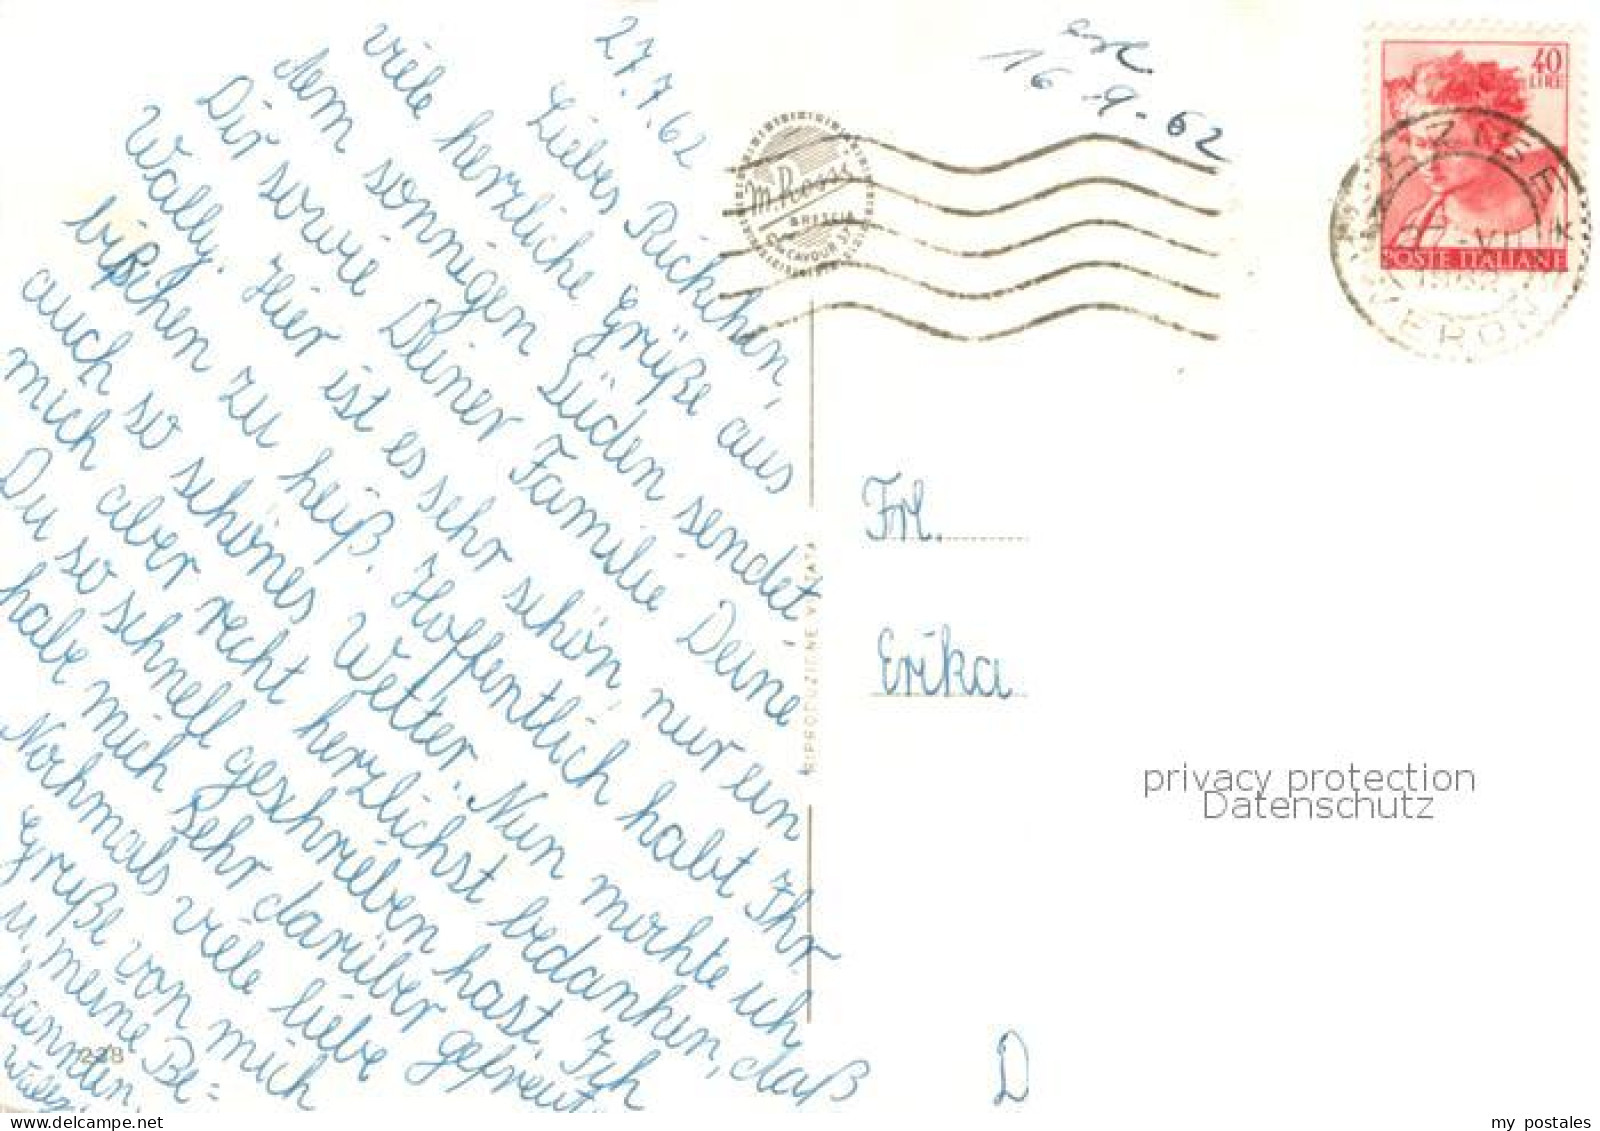 27.7.62
Liebes Rückchen,
viele herzliche Grüße aus
dem sonnigen Süden sendet
Dir sowie Deiner Familie Deine
Wally. Hier ist es sehr schön, nur ein
bißchen zu heiß. Hoffentlich habt Ihr
auch so schönes Wetter. Nun möchte ich
mich aber recht herzlichst bedanken, daß
Du so schnell geschrieben hast. Ich
habe mich sehr darüber gefreut.
Nochmals viele liebe
Grüße von mich
u. meine Be=
kannten.
Wally
16-9-62
M. Rossi
BRESCIA
C. CAVOUR 37
40
LIRE
POSTE ITALIANE
VERONA
RIPRODUZIONE VIETATA
Frl.
Erika
D
238
privacy protection
Datenschutz
my postales